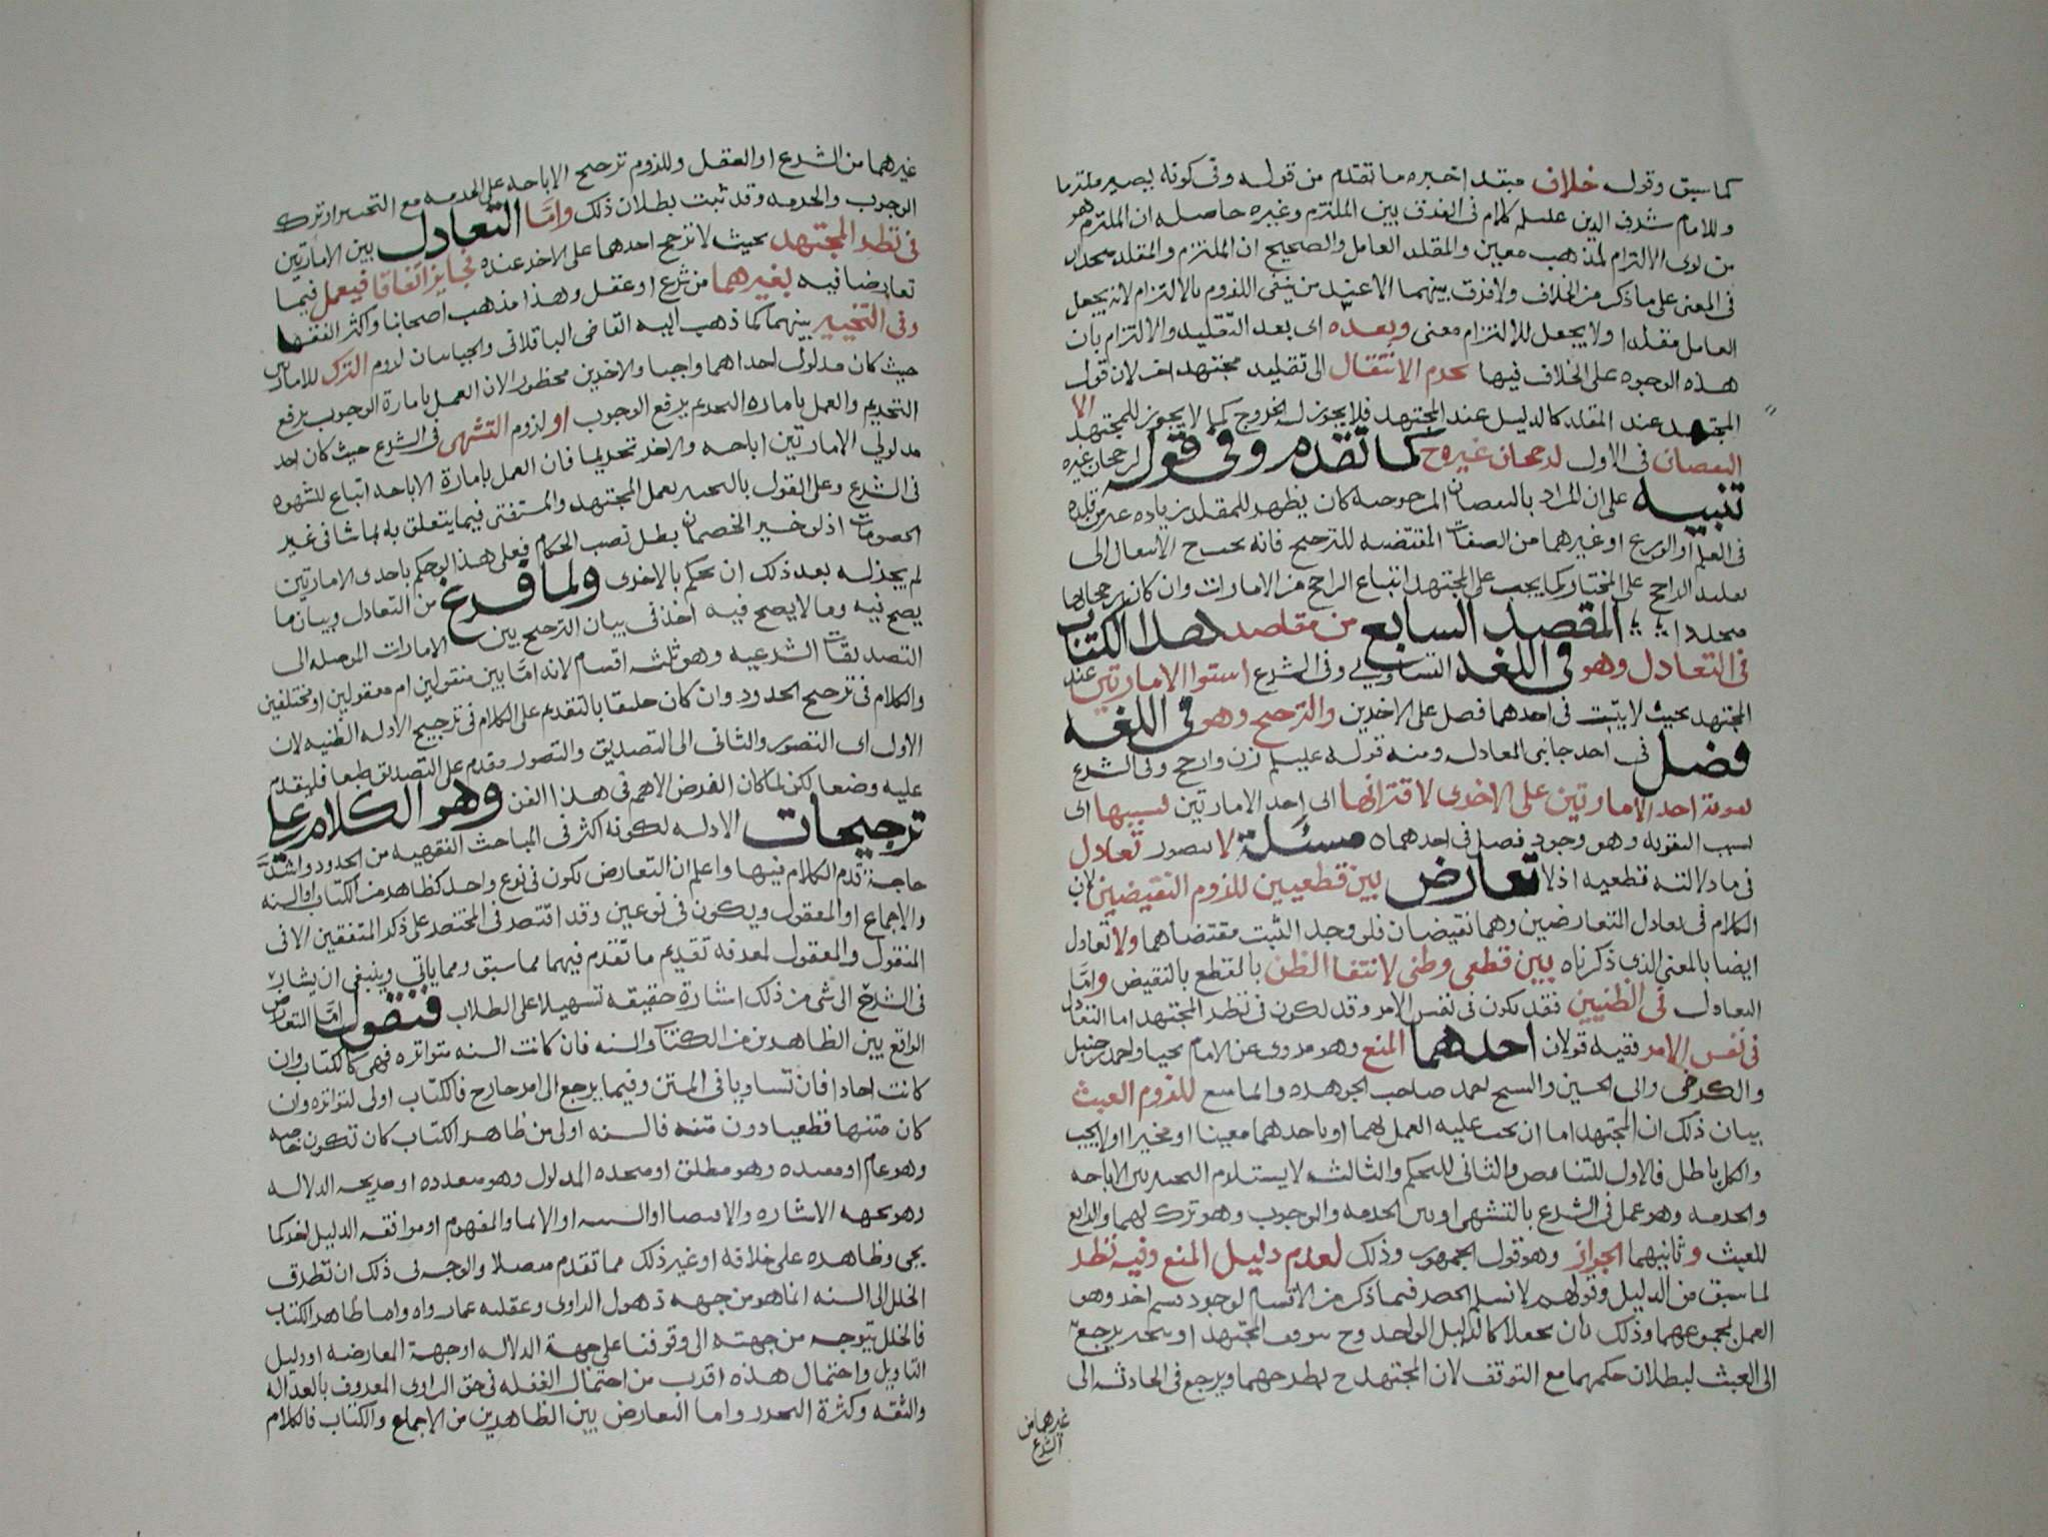 كما سبق وقوله خلاف مبتدا خبره ما تقدم من قوله وفي كونه يصير ملتزما
وللامام شرف الدين عليلم كلام في الفرق بين الملتزم وغيره حاصله ان الملتزم هو
من نوى الالتزام لمذهب معين والمقلد العامل والصحيح ان الملتزم والمقلد متحدان
في المعنى على ما ذكر من الخلاف ولا فرق بينهما الا عند من ينفي اللزوم بالالتزام لانه يجعل
العامل مقلدا ولا يجعل للالتزام معنى وبعده اي بعد التقليد والالتزام بان
هذه الوجوه على الخلاف فيها يحرم الانتقال الى تقليد مجتهد اخر لان قول
المجتهد عند المقلد كالدليل عند المجتهد فلا يجوز له الخروج كما لا يجوز للمجتهد الا
النقصان في الاول لرجحان غيره ح كما تقدم وفي قوله لرجحان غيره
تنبيه على ان المراد بالنقصان المرجوحية كان يظهر للمقلد زيادة غير من قلده
في العلم او الورع او غيرهما من الصفات المقتضيه للترجيح فانه يحب ح الانتقال الى
تقليد الراجح على المختار كما يجب على المجتهد اتباع الراجح من الامارات وان كان رجحانها
متجددا المقصد السابع من مقاصد هذا الكتاب
في التعادل وهو في اللغه التساوي وفي الشرع استوا الامارتين عند
المجتهد بحيث لا يثبت في احدهما فضل على الاخرى والترجيح وهو في اللغه
فضل في احد جانبي المعادل ومنه قوله عليلم زن وارجح وفي الشرع
تقوية احد الامارتين على الاخرى لاقترانها اى احد الامارتين لسببها اى
لسبب التقويه وهو وجود فضل في احدهما مسئلة لا يتصور تعادل
في ما دلالته قطعيه اذ لا تعارض بين قطعيين للزوم النقيضين لان
الكلام في تعادل المتعارضين وهما نقيضان فلو وجدا لثبت مقتضاهما ولا تعادل
ايضا بالمعنى الذي ذكرناه بين قطعي وظني لانتفا الظن بالقطع بالنقيض واما
التعادل في الظنيين فقد يكون في نفس الامر وقد يكون في نظر المجتهد اما التعادل
في نفس الامر ففيه قولان احدهما المنع وهو مروي عن الامام يحيا واحمد بن حنبل
والكرخي وابي الحسين والشيخ احمد صاحب الجوهره والمانع للزوم العبث
بيان ذلك ان المجتهد اما ان يجب عليه العمل بهما او باحدهما معينا او مخيرا او لا يجب
والكل باطل فالاول للتناقض والثاني للتحكم والثالث لا يستلزم التخيير بين الاباحه
والحرمه وهو عمل في الشرع بالتشهي او بين الحرمه والوجوب وهو ترك لهما والرابع
للعبث وثانيهما الجواز وهو قول الجمهور وذلك لعدم دليل المنع وفيه نظر
لما سبق من الدليل وقولهم لا نسلم الحصر فيما ذكر من الاقسام لوجود قسم اخر وهو
العمل بمجموعهما وذلك بان يجعلا كالدليل الواحد وح يتوقف المجتهد او يتخير يرجع
الى العبث لبطلان حكمهما مع التوقف لان المجتهد ح يطرحهما ويرجع في الحادثه الى
غيرهما من
الشرع
غيرهما من الشرع او العقل وللزوم ترجيح الاباحه على الحرمه مع التخيير او ترك
الوجوب والحرمه وقد ثبت بطلان ذلك واما التعادل بين الامارتين
في نظر المجتهد بحيث لا ترجح احدهما على الاخر عنده فجايز اتفاقا فيعمل فيما
تعارضا فيه بغيرهما من شرع او عقل وهذا مذهب اصحابنا واكثر الفقها
وفي التخيير بينهما كما ذهب اليه القاضي الباقلاني والجبايان لزوم الترك للامارتين
حيث كان مدلول احداهما واجبا والاخرى محظورا لان العمل بامارة الوجوب يرفع
التحريم والعمل باماره التحريم يرفع الوجوب او لزوم التشهي في الشرع حيث كان احد
مدلولي الامارتين اباحه والاخر تحريما فان العمل بامارة الاباحه اتباع للشهوه
في الشرع وعلى القول بالتخيير يعمل المجتهد والمستفتي فيما يتعلق به بما شا في غير
الخصومات اذ لو خير الخصمان بطل نصب الحكام فعلى هذا لو حكم باحدى الامارتين
لم يجز له بعد ذلك ان يحكم بالاخرى ولما فرغ من التعادل وبيان ما
يصح فيه وما لا يصح فيه اخذ في بيان الترجيح بين الامارات الموصله الى
التصديقات الشرعيه وهو ثلثه اقسام لانه اما بين منقولين ام معقولين او مختلفين
والكلام في ترجيح الحدود وان كان حقيقا بالتقديم على الكلام في ترجيح الادله الظنيه لان
الاول اى التصور والثاني الى التصديق والتصور مقدم على التصديق طبعا فليقدم
عليه وضعا لكن لما كان الغرض الاهم في هذا الفن وهو الكلام على
ترجيحات الادله لكونه اكثر في المباحث الفقهيه من الحدود واشد
حاجة قدم الكلام فيها واعلم ان التعارض يكون في نوع واحد كظاهر من الكتاب او السنه
والاجماع او المعقول ويكون في نوعين وقد اقتصر في المختصر على ذكر المتفقين الا في
المنقول والمعقول لمعرفه تقديم ما تقدم فيهما مما سبق ومما ياتي وينبغي ان يشار
في الشرح الى شي من ذلك اشارة خفيفه تسهيلا على الطلاب فنقول اما التعارض
الواقع بين الظاهرين من الكتاب والسنه فان كانت السنه متواتره فهي كالكتاب وان
كانت احادا فان تساويا في المتن وفيما يرجع الى امر خارج فالكتاب اولى لتواتره وان
كان متنها قطعيا دون متنه فالسنه اولى من ظاهر الكتاب كان تكون خاصه
وهو عام او مقيده وهو مطلق او متحده المدلول وهو متعدده او صريحه الدلاله
وهو بجهه الاشاره والاقتضا او التنبيه او الايما والمفهوم او موافقه الدليل اخر كما
يجي وظاهره على خلافه او غير ذلك مما تقدم مفصلا والوجه في ذلك ان تطرق
الخلل الى السنه انما هو من جهه ذهول الراوي وغفلته عما رواه واما ظاهر الكتاب
فالخلل يتوجه من جهته الى وقوفنا على جهة الدلاله او جهة المعارضه او دليل
التاويل واحتمال هذه اقرب من احتمال الغفله في حق الراوي المعروف بالعداله
والثقه وكثرة التحرز واما التعارض بين الظاهرين من الاجماع والكتاب فالكلام